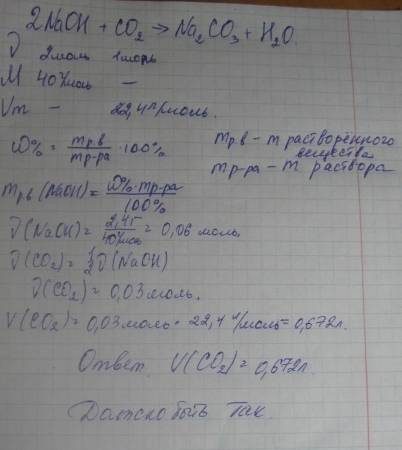 2NaOH + CO₂ → Na₂CO₃ + H₂O.
ν 2 моль 1 моль
M 40 г/моль –
Vm – 22,4 л/моль.
ω% = mр.в / mр-ра · 100%
mр.в – m растворённого
вещества
mр-ра – m раствора
mр.в (NaOH) = ω% · mр-ра / 100%
ν(NaOH) = 2,4г / 40г/моль = 0,06 моль.
ν(CO₂) = ½ν(NaOH)
ν(CO₂) = 0,03 моль.
V(CO₂) = 0,03 моль · 22,4 л/моль = 0,672л.
Ответ V(CO₂) = 0,672л.
Должно быть так.